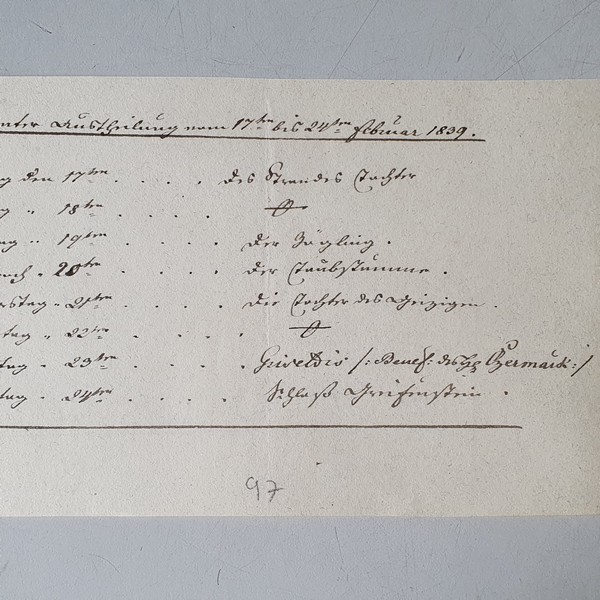 nter Austheilung vom 17ten bis 24ten Februar 1839.
g den 17ten . . . . des Strandes Tochter
g " 18ten . . . .
ag " 19ten . . . . Der Zögling .
och " 20ten . . . . der Taubstumme .
rstag " 21ten . . . . Die Tochter des Geizigen .
tag " 22ten . . . .
tag " 23ten . . . . Griseldis /: Benef: des H: Czermack :/
tag " 24ten . . . . Schloß Greifenstein .
97